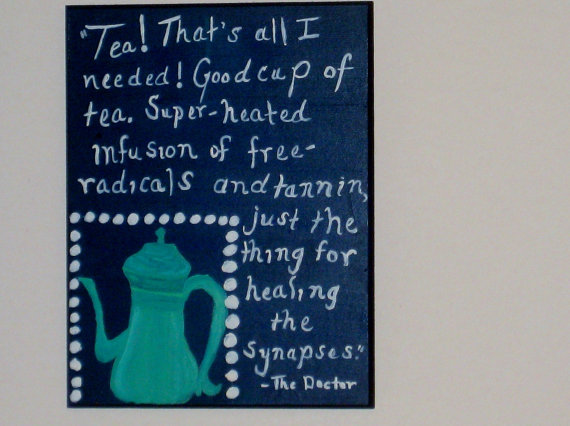 "Tea! That's all I
needed! Good cup of
tea. Super-heated
infusion of free-
radicals and tannin,
just the
thing for
healing
the
synapses."
-The Doctor